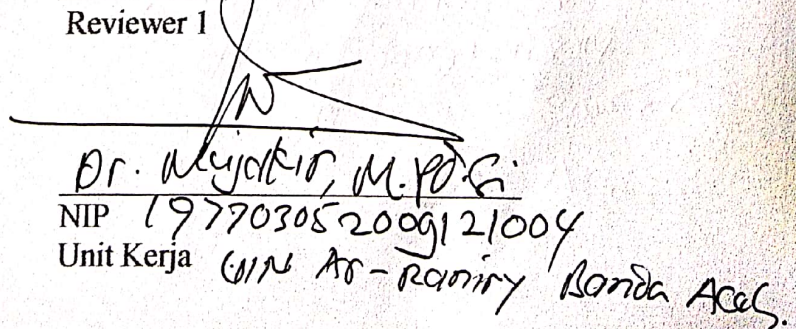 Reviewer 1
Dr. Mujakir, M.Pd.Si
NIP 197703052009121004
Unit Kerja UIN Ar-Raniry Banda Aceh.